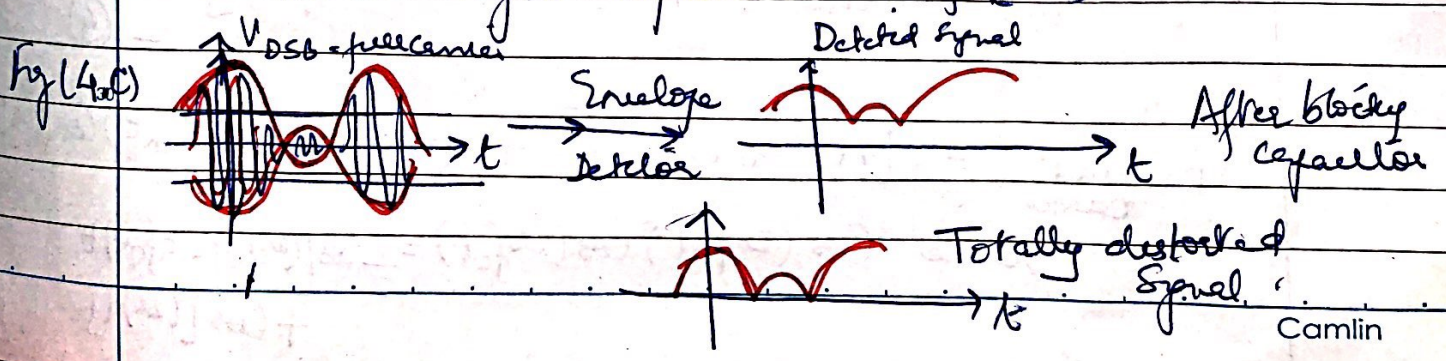 Fig (4.3C)
V DSB-fullcarrier
t
Envelope
Detector
Detected Signal
t
After blocking
capacitor
t
Totally distorted
Signal.
Camlin